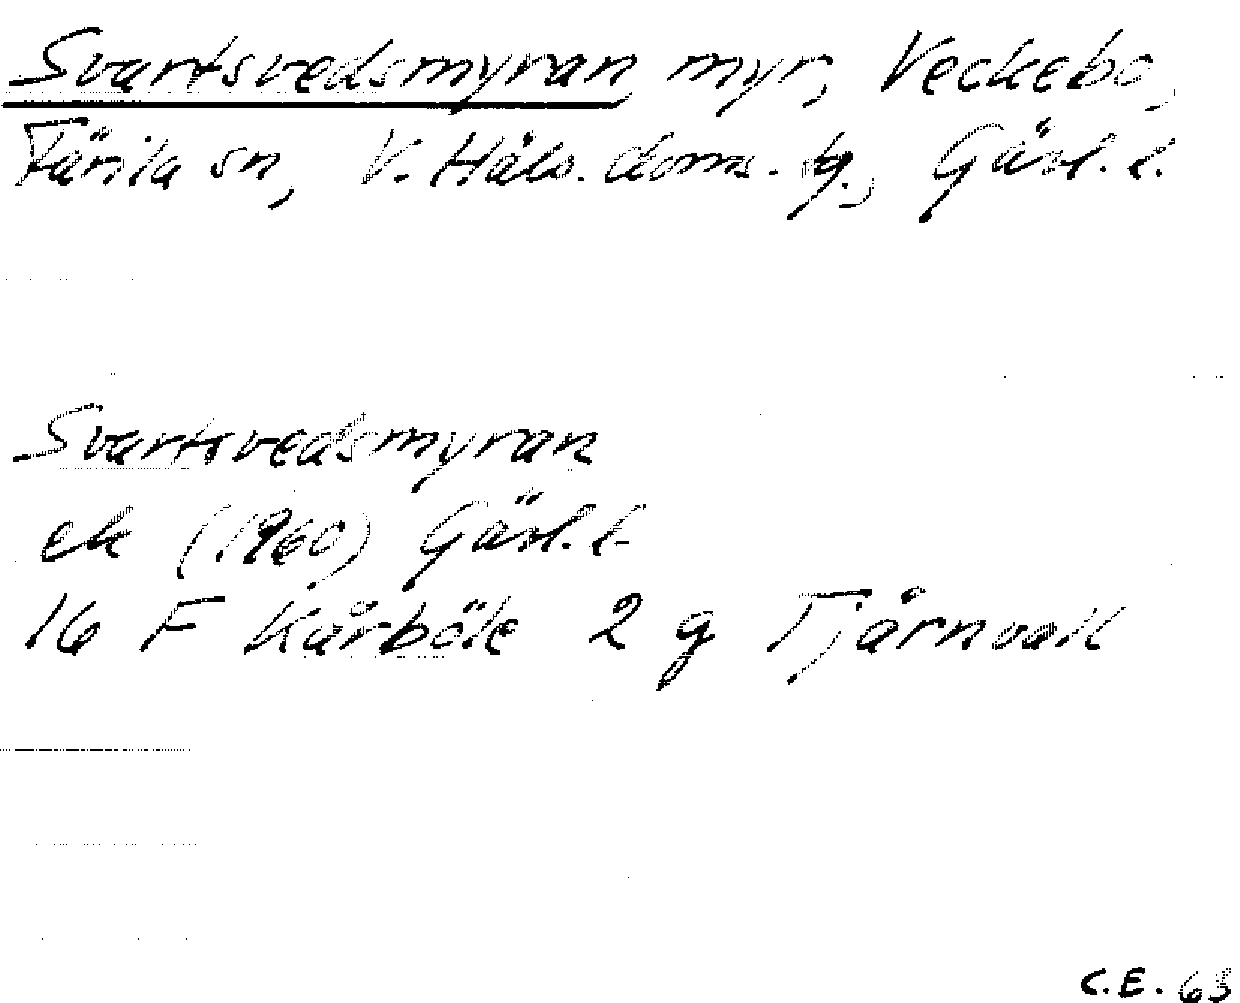 Svartsvedsmyran myr, Veckebo,
Färila sn, V. Häls. doms. tg., Gävl. l.
Svartsvedsmyran
ek (1960) Gävl. l.
16 F Kårböle 2 g Tjärnvall
C.E. 63